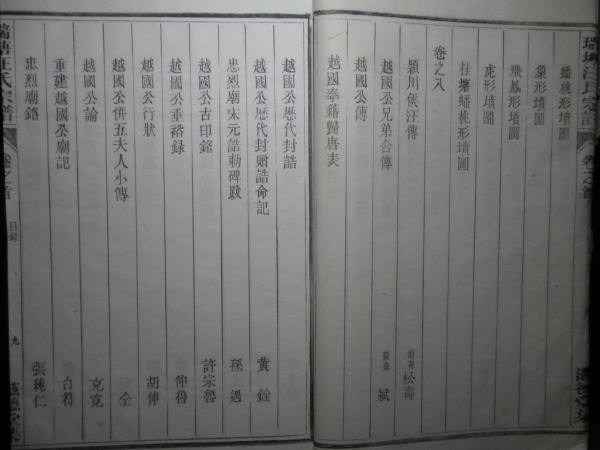 蟠桃形墳圖
象形墳圖
飛鳳形墳圖
虎形墳圖
桂塘蟠桃形墳圖
卷之八
潁川侯汪傳 裔孫 松壽
越國公兄弟合傳 裔孫 斌
越國公傳
越國奉籍歸唐表
越國公歷代封誥
越國公歷代封贈誥命記 黄銓
忠烈廟宋元誥勅碑跋 孫遇
越國公古印銘 許宗魯
越國公垂裕録 仲魯
越國公行狀 胡伸
越國公併五夫人小傳 仝
越國公論 克寬
重建越國公廟記 台符
忠烈廟銘 張純仁
汪氏宗譜
卷之首
目録
九